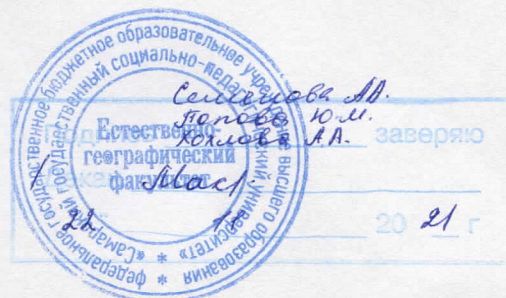 федеральное государственное бюджетное образовательное учреждение высшего образования
«Самарский государственный социально-педагогический университет»
Естественно-
географический
факультет
Семенова А.А.
Попова Ю.М.
Хохлова А.А.
заверяю
22 11 20 21 г